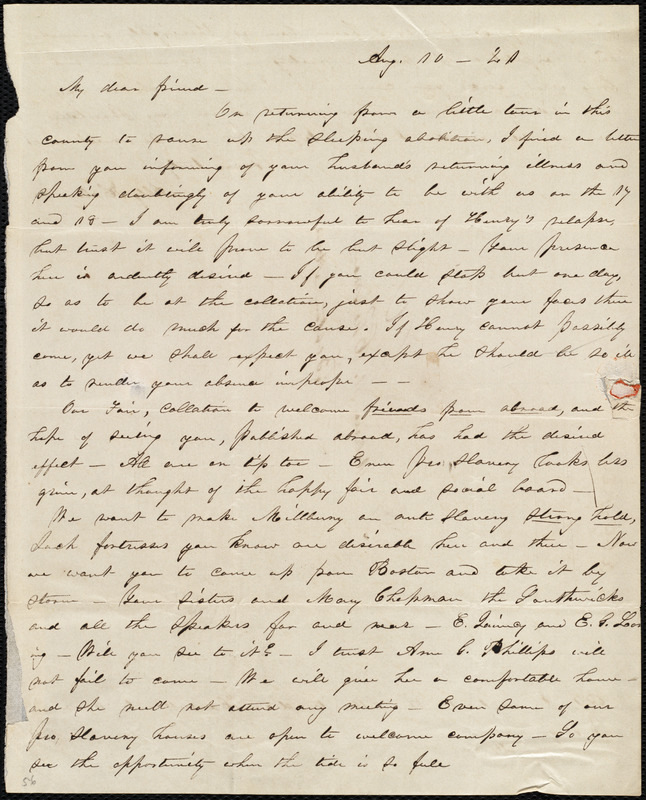 Aug. 10 - 41
My dear friend -
On returning from a little tour in this
county to rouse up the sleeping abolition, I find a letter
from you informing of your husband's returning illness and
speaking doubtingly of your ability to be with us on the 17
and 18 - I am truly sorrowful to hear of Henry's relapse,
but trust it will prove to be but slight - Your presence
here is ardently desired - If you could stop but one day,
so as to be at the collation, just to show your faces there
it would do much for the cause. If Henry cannot possibly
come, yet we shall expect you, except he should be so ill
as to render your absence improper - -
Our Fair, collation to welcome friends from abroad, and the
hope of seeing you, published abroad, has had the desired
effect - All are on tip toe - Even Pro Slavery looks less
grim, at thought of the happy fair and social board -
We want to make Millbury an anti slavery strong hold,
Such fortresses you know are desirable here and there - Now
we want you to come up from Boston and take it by
storm - Your sisters and Mary Chapman the Southwicks
and all the speakers far and near - E. Quincy and E. G. Lor
ing - Will you see to it? - I trust Ann C. Phillips will
not fail to come - We will give her a comfortable home -
and she need not attend any meeting - Even some of our
pro Slavery houses are open to welcome company - So you
see the opportunity when the tide is so full
56